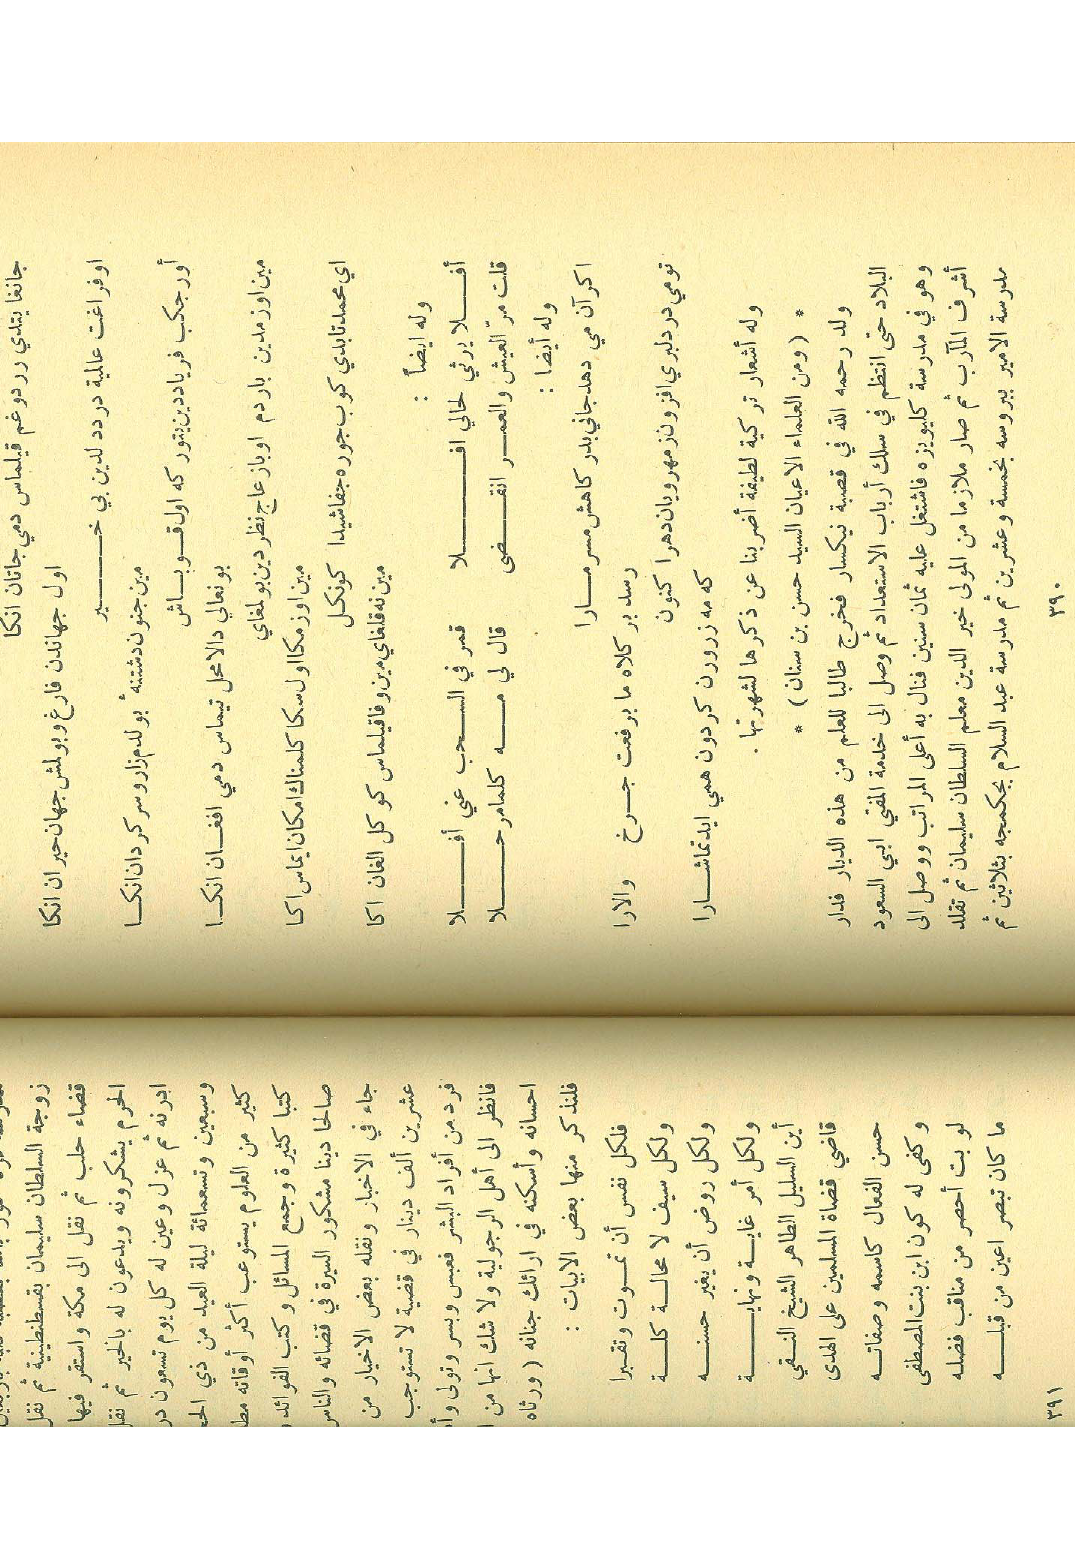 جانغا يتدي دردوغم قيلماس دمي جانان انكا
اول جهاندن فارغ وبولمش جهان حيران انكا
اوفراغت عالمية درددلدين بي خـــبر
مين جنون دشتنه بولدم زار وسركردان انكـــا
أورجكب فرياددين يتور كه اول قـــوبـــاش
بونعالي دالامحل تيماس دمي افغـــان انكـــا
مين اوزمدين باردم اوباز عاج نظردين بولمغاي
مين اوزمكا اول سكا كلمناك امكان ايماس اكا
اي محمد تابدي كوب جوره جفاشيدا كونكـــل
مين نه قلغاي مين وفا قيلماس كوكل الغان اكا
وله ايضاً :
أفـــلا يرثي لحالي افـــلا قمر في السـحب عني أفـــلا
قلت مرّ العيش والعمـــر انقـــضى قال لي مـــه كلمامر حـــلا
وله أيضا :
اكر آن مي دهد جاني بدر كاهش مسر مـــارا
رسد بر كلاه ما برفعت جـــرخ والارا
تومي در دلبري افزون زمهر ويان دهرا كنون
كه مه زرورن كردون همي ايد تماشـــارا
وله أشعار تركية لطيفة أضربنا عن ذكرها لشهرتها .
* ( ومن العلماء الاعيان السيد حسن بن سنان ) *
ولد رحمه الله في قصبة نيكسار فخرج طالبا للعلم من هذه الديار فدار
البلاد حتى انتظم في سلك أرباب الاستعداد ثم وصل الى خدمة المفتي ابي السعود
وهو في مدرسة كليويزه فاشتغل عليه ثمان سنين فنال به أعلى المراتب ووصل الى
أشرف المآرب ثم صار ملازما من المولى خير الدين معلم السلطان سليمان ثم تقلد
مدرسة الامير ببروسه بخمسة وعشرين ثم مدرسة عبد السلام بجكمجه بثلاثين ثم
٣٩٠
زوجة السلطان سليمان بقسطنطينية ثم نقل
قضاء حلب ثم نقل الى مكة واستقر فيها
الحرم يشكرونه ويدعون له بالخير ثم نقل
ادرنه ثم عزل وعين له كل يوم تسعون در
وسبعين وتسعمائة ليلة العيد من ذي الحـ
كثير من العلوم يستوعب أكثر أوقاته مطـ
كتبا كثيرة وجمع المسائل وكتب الفوائد
صالحا دينا مشكور السيرة في قضائه والناس
جاء في الاخبار ونقله بعض الاخيار من
عشرين ألف دينار في قضية لا تستوجب
فرد من أفراد البشر فعبس وبسر وتولى وأ
فانظر الى أهل الرجولية ولا شك انها من ا
احسانه وأسكنه في ارائك جنانه ( ورثاه
فلنذكر منها بعض الابيات :
فلكل نفس أن تمـــوت وتقـــبرا
ولكل سيف لا محالـــة كلـــة
ولكل روض أن يغير حسنـــه
ولكل أمر غايـــة ونهايـــة
أين السليل الطاهر الشيخ النـــقي
قاضي قضاة المسلمين على الهدى
حسن الفعال كاسمه وصفاتـــه
وكفى له كون ابن بنت المصطفى
لو بت أحصر من مناقب فضله
ما كان تبصر اعين من قبلـــه
٣٩١